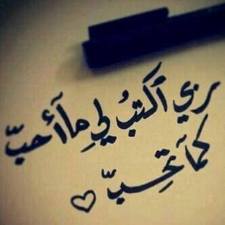 ربي اكتبُ لي مآ أحبّ
كمآ تحبّ